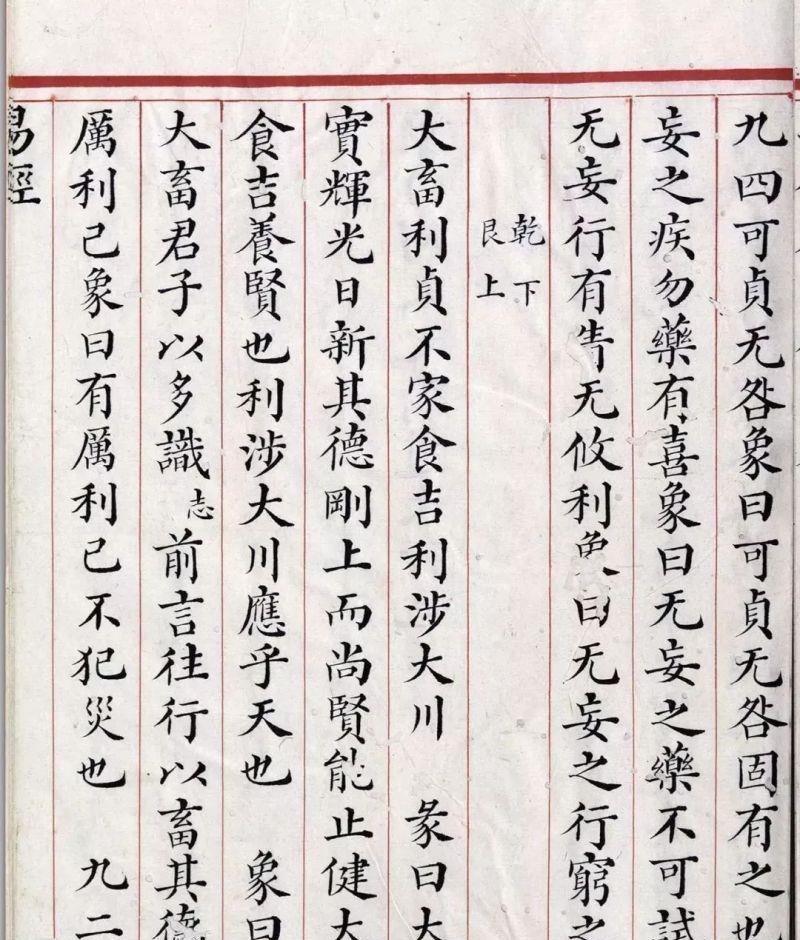 九四可貞无咎象曰可貞无咎固有之也
妄之疾勿藥有喜象曰无妄之藥不可試
无妄行有眚无攸利象曰无妄之行窮之
乾下
艮上
大畜利貞不家食吉利涉大川 彖曰大
實輝光日新其德剛上而尚賢能止健大
食吉養賢也利涉大川應乎天也 象曰
大畜君子以多識志前言往行以畜其德
厲利已象曰有厲利已不犯災也 九二
易經